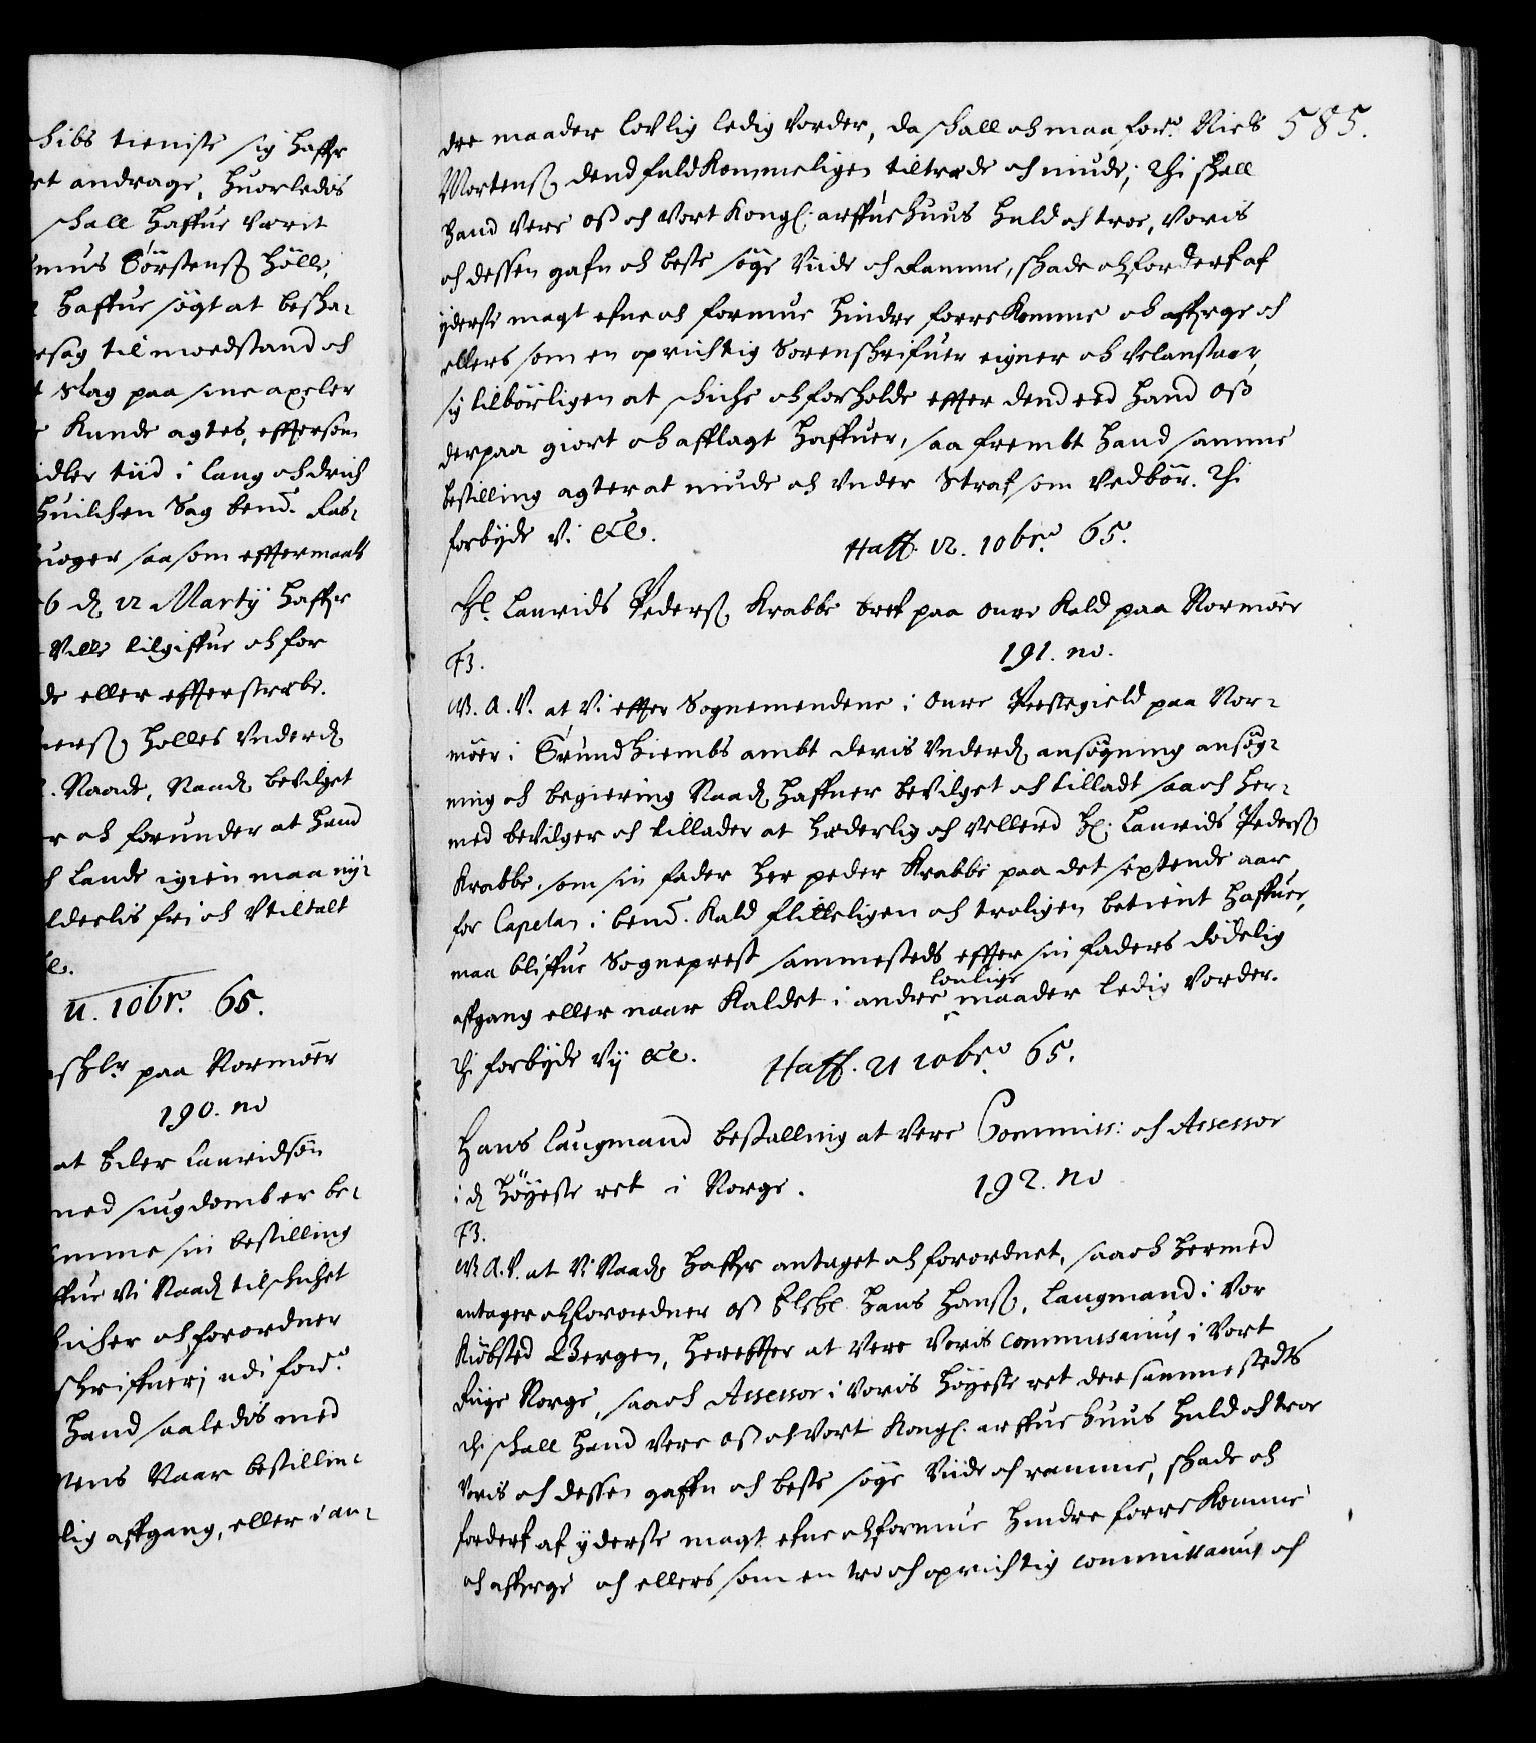 hibs tieniste sig haffr
rt andrage, huorledis
shall haffue værit
mus Törstensß hölle,
haffue søgt at besha-
rsag til modstand och
t slag paa sine axler
kunde agtes, effterson
idler tiid i lang och drich
huilchen Sag bemt. Ras-
huoger saasom efftermaalt
6 d. 12 Martij haffr
ville tilgiffue och for
de eller effterstræbe.
ersß holles underd.
Naade, Naad. bevilget
r och forunder at hand
h lande igien maa nÿ-
lderlis fri och vtiltalt
11. 10br. 65.
shlr. paa Normöer
190. no
at Eiler Lauridsön
med siugdomb er be-
amme sin bestilling
ffue Vi Naad. tilschichet
bicher och forordner
schriffuerj udi ford.
hand saaledis med
mens Naar bestillin-
lig affgang, eller i an-
585.
dre maader lovlig ledig vorder, da shall och maa ford. Niels
Mortensß dend fuldkommeligen tiltrede och niude; Thi shall
hand vere osß och Vort Kongl. arffuehuus huld och troe, Voris
och dessen gafn och beste søge viide och ramme, shade och forderf af
yderste magt efne och formue hindre forrekomme och afferge och
ellers som en oprichtig Sorenshrifuer eigner och velanstaar,
sig tilbörligen at schiche och forholde effter dend eed hand osß
derpaa giort och afflagt haffuer, saa frembt hand samme
bestilling agter at niude och under Straf som vedbör. Thi
forbÿde Vi &c.
Haff. 12. 10br. 65.
Hr. Laurids Pedersß Krabbe bref paa Oure Kald paa Normöer
F3.
191. no.
W. A. V. at Vi effter Sognemendene i Oure Prestegield paa Nor-
möer i Trundhiembs ambt deris underd. ansögning ansög-
ning och begiering Naad. haffuer bevilget och tilladt saa och her-
med bevilger och tillader at hæderlig och vellerd Hr. Laurids Pedersß
Krabbe, som sin fader her peder Krabbe paa det sextende aar
for Capelan i bemt. Kald flitteligen och troligen betient haffuer,
maa bliffue Sogneprest sammesteds effter sin faders dödelig
affgang eller naar Kaldet i andre lovlige maader ledig vorder.
Thi forbÿde Vij &c.
Haff. 21 10br. 65.
Hans Laugmand bestalling at vere Commiss: och Assessor
i d. höÿeste ret i Norge.
192. no
F3.
W. A. V. at Vi Naad. haffr antaget och forordnet, saa och hermed
antager och forordner osß Elskl. Hans Hansß, Laugmand i vor
Kiöbsted Bergen, hereffter at vere Voris Commissarius i vort
Riige Norge, saa och Assessor i Voris höÿeste ret der sammestedts
Thi shall hand vere osß och Vort Kongl. arffue huus huld och troe
Voris och dessen gaffn och beste søge viide och ramme, shade och
forderf af ÿderste magt efne och formue hindre forrekomme
och afferge och ellers som en tro och oprichtig commissarius och